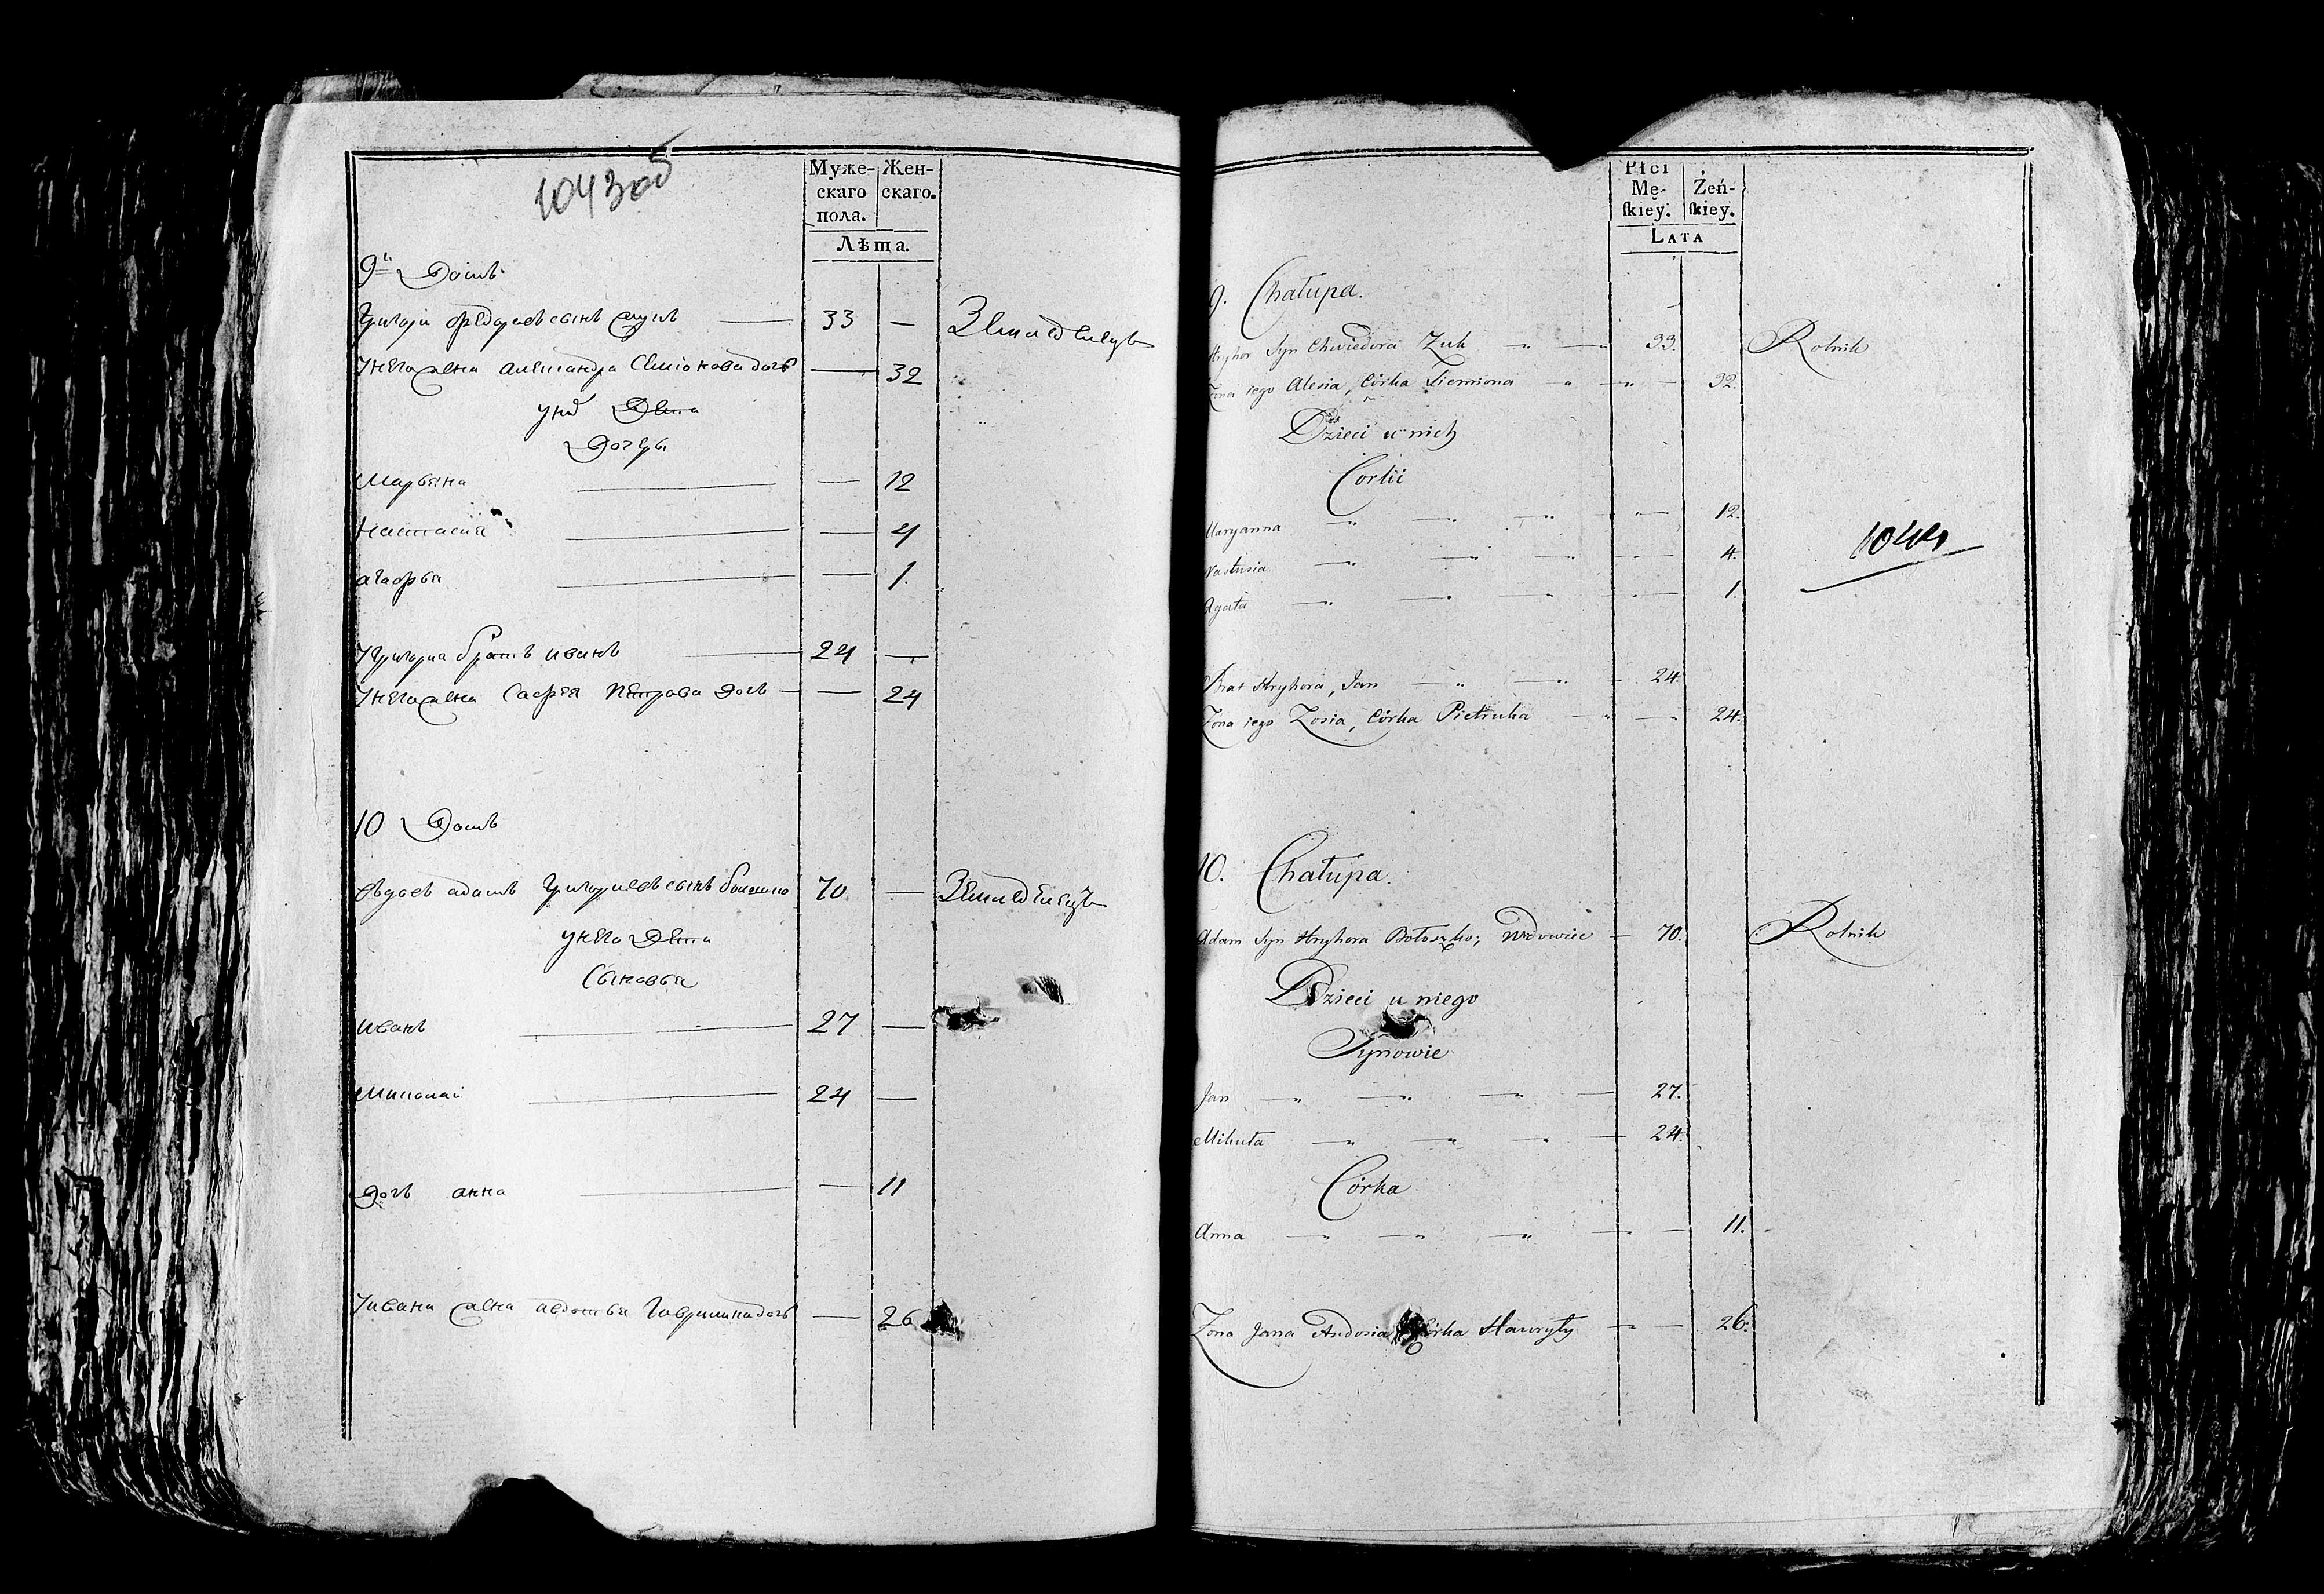 1043об
Муже-
скаго
пола.
Жен-
скаго.
Лѣта.
9й Домъ
Григори Федоровъ сынъ Жукъ — 33 — Земледелецъ
У него жена Александра Семионова дочь — 32
У нихъ Дети
Дочери
Марьяна — 12
Настасия — 4
Агафья — 1.
У Григориа братъ Иванъ — 24 —
У него жена Софья Петрова дочь — 24
10 Домъ
Вдовъ Адамъ Григориевъ сынъ 70 — Земледелецъ
У него Дети
Сыновья
Иванъ — 27 —
Миколай — 24 —
Дочь Анна — 11
У Ивана жена Авдотья Гаврилина дочь — 26
Płci
Mę-
skiey.
Żeń-
skiey.
Lata
9. Chałupa.
Hryhor Syn Chwiedora Zuk — 33. Rolnik
Zona iego Alesia, Córka Siemiona — 32.
Dzieci u nich
Corki
Maryanna — 12.
Nastusia — 4.
Agata — 1.
1044
Brat Hryhora, Jan — 24.
Zona iego Zosia, Córka Pietruka — 24.
10. Chałupa.
Adam Syn Hryhora Bołoszko; Wdowiec — 70. Rolnik
Dzieci u niego
Synowie
Jan — 27.
Mikuła — 24.
Córka
Anna — 11.
Zona Jana Audosia Córka Hawryły — 26.